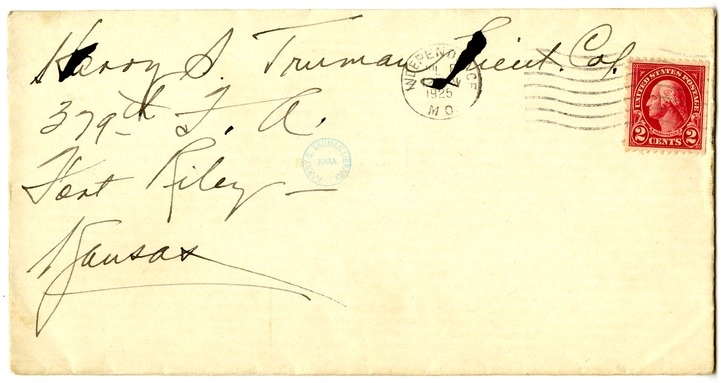 Harry S. Truman Lieut. Col.
379th F. A.
Fort Riley
Kansas
INDEPENDENCE
1925
MO.
UNITED STATES POSTAGE
2 CENTS 2
HARRY S. TRUMAN LIBRARY
NARA